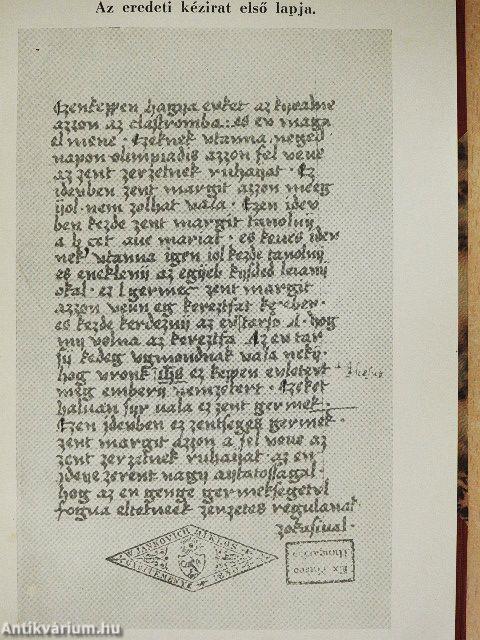 Az eredeti kézirat első lapja.
Ezenkeppen hagya evket az kyralne
azzon az clastromba: es ev maga
el mene · Ezeknek vtanna, neged
napon olimpiadis azzon fel veve
az zent zerzetnek ruhaiat · Ez
idevben zent margit azzon meeg
iol nem zolhat vala · Ezen idev
ben kezde zent margit tanolny
a b cet aue mariat · es keues idev
nek vtanna igen iol kezde tanolny
es enekleny az egyeb kysded leiany
okal · ez germec zent margit
azzon
es kezde kerdezny az hog
my volna az kereztfa Az ev tar
sy kedeg vgmondnak vala neky
hog vronk ihs ez keppen evletet
meg embery nemzetert · Ezeket
halvan syr vala ez zent germek ·
Ezen idevben ez zentseges germek
zent margit azzon a fel veve az
zent zerzetnek ruhaiat az en
ideye zerent nagy aytatossagal
hog az en genge germeksegetvl
fogva eltetneek zenzetes regulanak
zokasival ·
Jhesus
W. JANKOVICH MIKLÓS
GYŰJTEMÉNYE
Ex Museo
Hungarico
Antikvárium.hu